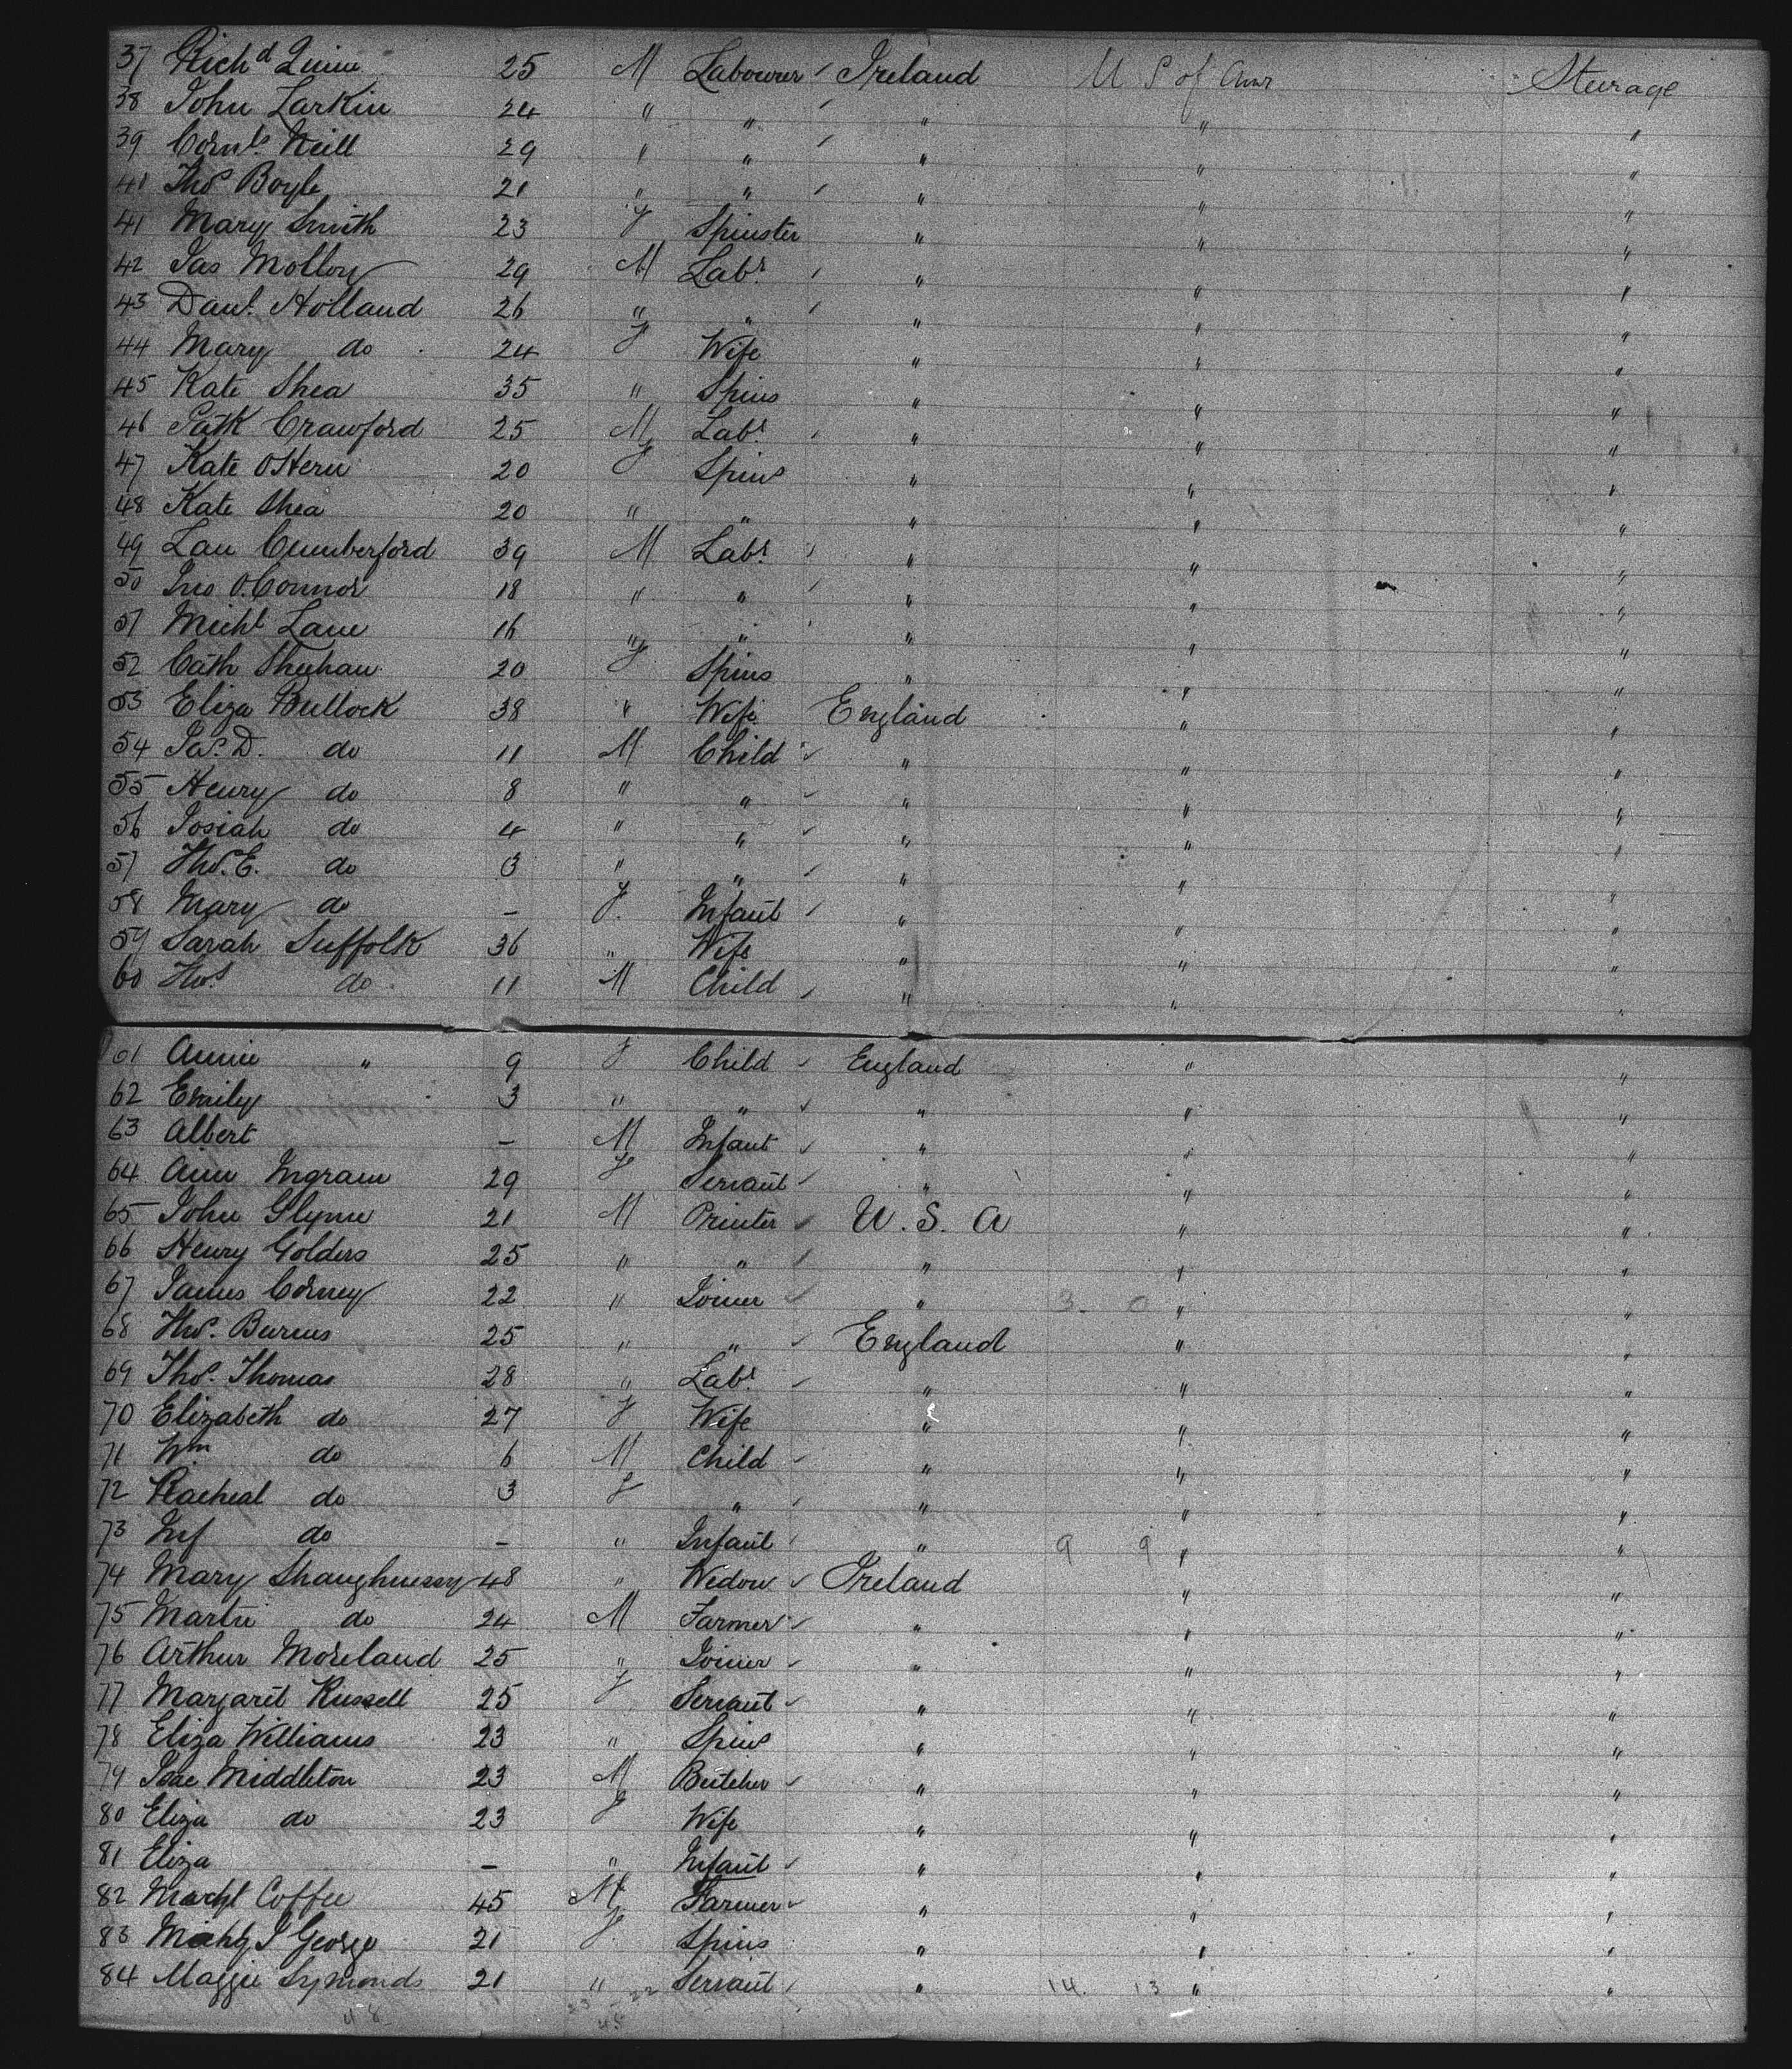 37 Richd Quinn 25 M Labourer Ireland U S of Amr Steerage
38 John Larkin 24 " " " " "
39 Cornls Neill 29 " " " " "
40 Thos Boyle 21 " " " " "
41 Mary Smith 23 F Spinster " " "
42 Jas Molloy 29 M Labr " " "
43 Danl. Holland 26 " " " " "
44 Mary do 24 F Wife " " "
45 Kate Shea 35 " Spins " " "
46 Patk Crawford 25 M Labr " " "
47 Kate OHern 20 F Spins " " "
48 Kate Shea 20 " " " " "
49 Lau Cumberford 39 M Labr " " "
50 Jno O.Connor 18 " " " " "
51 Michl Lane 16 " " " " "
52 Cath Sheehan 20 F Spins " " "
53 Eliza Bullock 38 " Wife England " "
54 Jas. D. do 11 M Child " " "
55 Henry do 8 " " " " "
56 Josiah do 4 " " " " "
57 Thos. E. do 3 " " " " "
58 Mary do - F. Infant " " "
59 Sarah Suffolk 36 " Wife " " "
60 Thos do 11 M Child " " "
61 Annie " 9 F Child England " "
62 Emily 3 " " " " "
63 Albert - M Infant " " "
64 Ann Ingram 29 F Servant " " "
65 John Glynn 21 M Printer U. S. A " "
66 Henry Golders 25 " " " " "
67 James Corney 22 " Joiner " 3 - 0 " "
68 Thos. Burns 25 " " England " "
69 Thos. Thomas 28 " Labr " " "
70 Elizabeth do 27 F Wife " " "
71 Wm do 6 M Child " " "
72 Racheal do 3 F " " " "
73 Inf do - " Infant " 9 9 " "
74 Mary Shaughnessy 48 " Widow Ireland " "
75 Martin do 24 M Farmer " " "
76 Arthur Moreland 25 " Joiner " " "
77 Margaret Russell 25 F Servant " " "
78 Eliza Williams 23 " Spins " " "
79 Isac Middleton 23 M Butcher " " "
80 Eliza do 23 F Wife " " "
81 Eliza - " Infant " " "
82 Coffee 45 M Farmer " " "
83 George 21 F. Spins " " "
84 Maggie Symonds 21 " Servant " 14. 13 " "
48 22